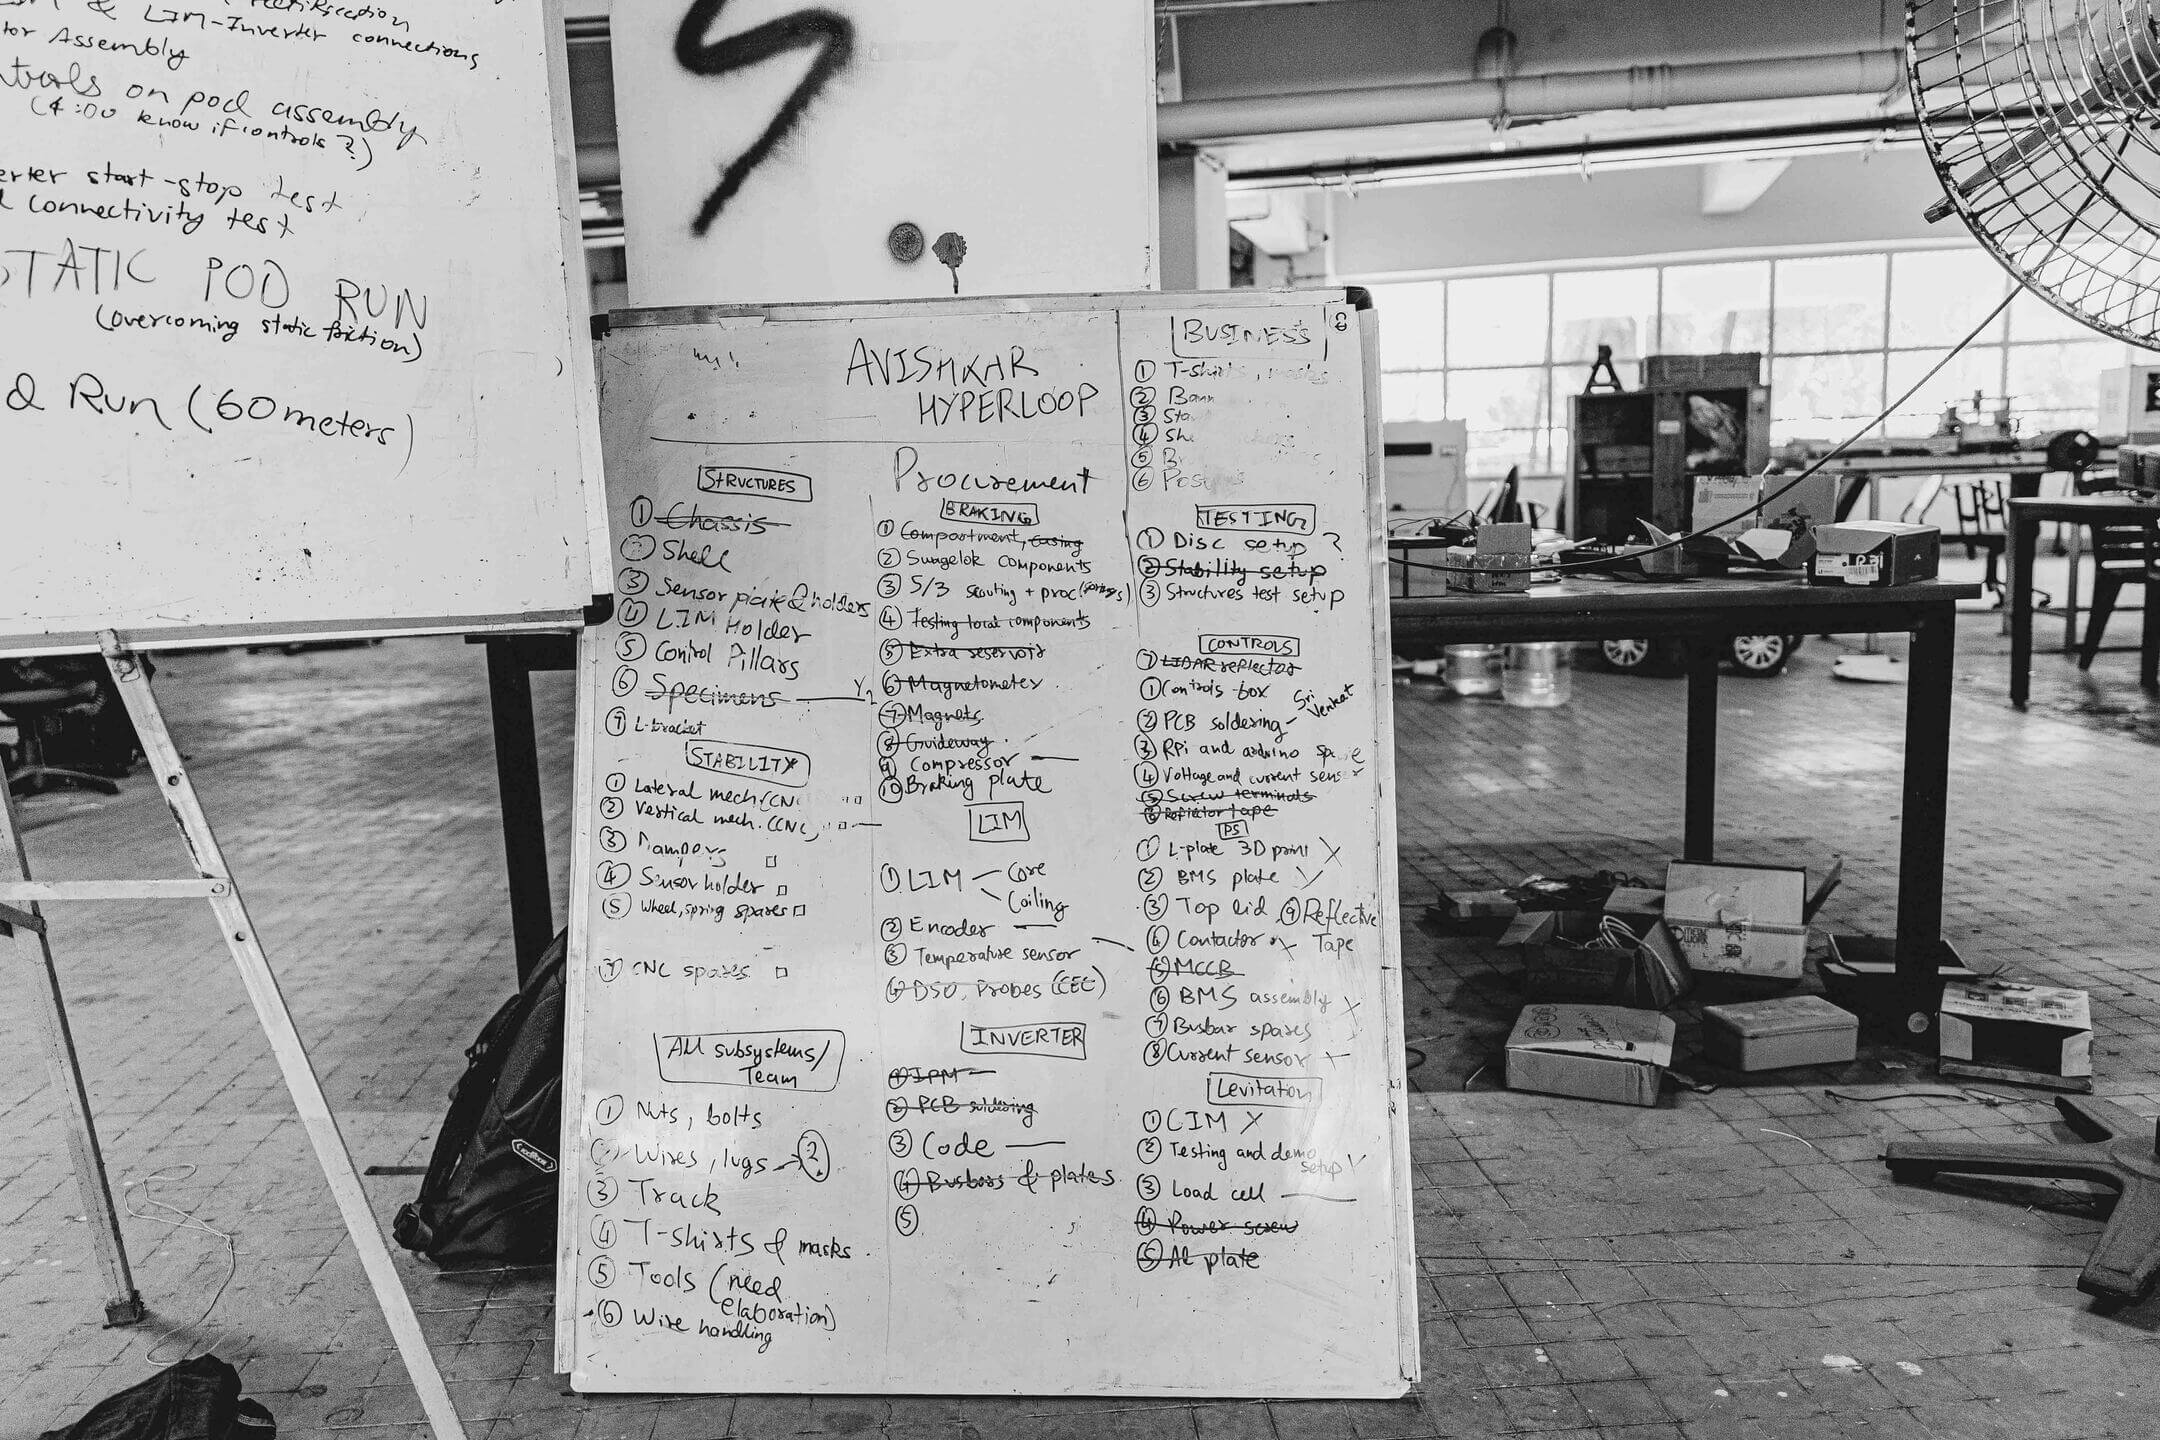 & LIM-Inverter connections
Assembly
on pod assembly
(4:00 know if controls ?)
start-stop test
connectivity test
STATIC POD RUN
(overcoming static friction)
& Run (60 meters)
AVISHKAR
HYPERLOOP
Procurement
STRUCTURES
① Chassis
② Shell
③ Sensor plate & holders
④ LIM Holder
⑤ Control Pillars
⑥ Specimens
⑦ L-bracket
STABILITY
① Lateral mech (CNC
② Vertical mech. (CNC)
③ Dampers
④ Sensor holder
⑤ Wheel, spring spares
⑦ CNC spares
All subsystems/
Team
① Nuts, bolts
② Wires, lugs → ②
③ Track
④ T-shirts & masks
⑤ Tools (need
elaboration)
⑥ Wire handling
BRAKING
① Compartment, casing
② Swagelok components
③ 5/3 scouting + proc
④ Testing local components
⑤ Extra reservoir
⑥ Magnetometer
⑦ Magnets
⑧ Guideway
⑨ Compressor
⑩ Braking plate
LIM
① LIM — Core
Coiling
② Encoder
③ Temperature sensor
④ DSO, Probes (CEC)
INVERTER
① IPM
② PCB soldering
③ Code
④ Busbars & plates
⑤
BUSINESS
① T-shirts, masks
②
③
④
⑤
⑥
TESTING
① Disc setup ?
② Stability setup
③ Structures test setup
CONTROLS
⑦ LIDAR reflector
① Controls box
② PCB soldering - Sri Venkat
③ RPi and arduino spare
④ Voltage and current sensor
⑤ Screw terminals
⑥ Reflector tape
PS
① L-plate 3D print X
② BMS plate
③ Top lid ⑨ Reflective
Tape
④ Contactor X
⑤ MCCB
⑥ BMS assembly X
⑦ Busbar spares
⑧ Current sensor
Levitation
① CIM X
② Testing and demo
setup
③ Load cell
④ Power screw
⑤ Al plate